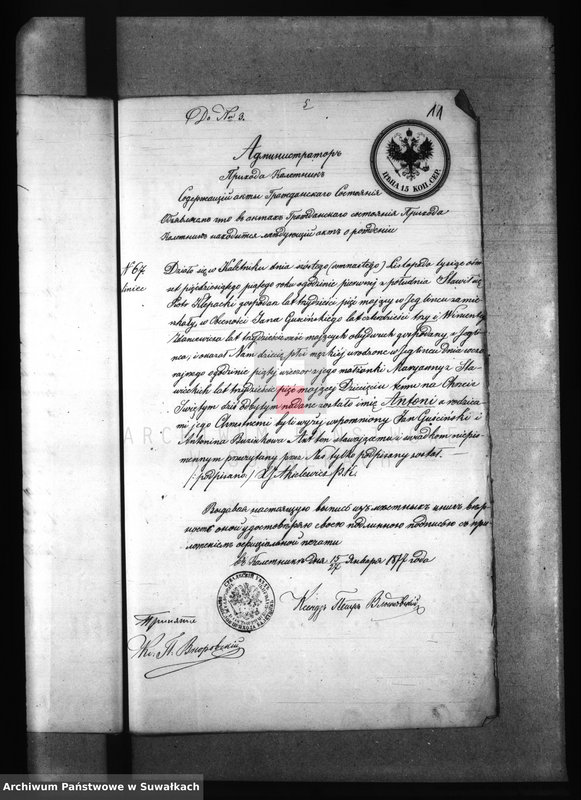 До № 3.
11
ЦѢНА 15 КОП. СЕР.
Администраторъ
Прихода Калетникъ
Содержащій акты Гражданскаго Состоянія
Объявляю что въ актахъ Гражданскаго состоянія Прихода
Калетникъ находится слѣдующій актъ о рожденіи
N 67
Działo się w Kaletniku dnia szóstego (ośmnastego) Listopada tysiąc ośm
set pięćdziesiątego piątego roku o godzinie pierwszej z południa Stawił się
Piotr Klepacki gospodarz lat trzydzieści pięć mający w Jegleńcu zamie
szkały, w Obecności Jana Guścińskiego lat czterdzieści trzy i Wincentego
lat trzydzieści mających obydwóch gospodarzy z Jegleń
ca, i okazał Nam dziecię płci męzkiej urodzone w Jegleńcu dnia wczo
rajszego o godzinie piątej wieczór z jego małżonki Maryanny z Sta
wieckich lat trzydzieści pięć mającej Dziecięciu temu na Chrzcie
Świętym dziś odbytym nadane zostało imię Antoni a rodzica
mi jego Chrzestnemi byli wyżej wspomniony Jan Guściński i
Antonina Akt ten stawającemu i świadkom niepiś
miennym przeczytany przez Nas tylko podpisany został.
(podpisano) X. J. Akielewicz P. K.
Выдавая настоящую выпись изъ мѣстныхъ книгъ вѣр
ность оной удостовѣряю своею подлинною подписью съ при
ложеніемъ оффиціальной печати
Въ Калетникъ дня 15/27 Января 1877 года
Ксендзъ Петръ
Принято
Кс. П. Вноровскій
Archiwum Państwowe w Suwałkach